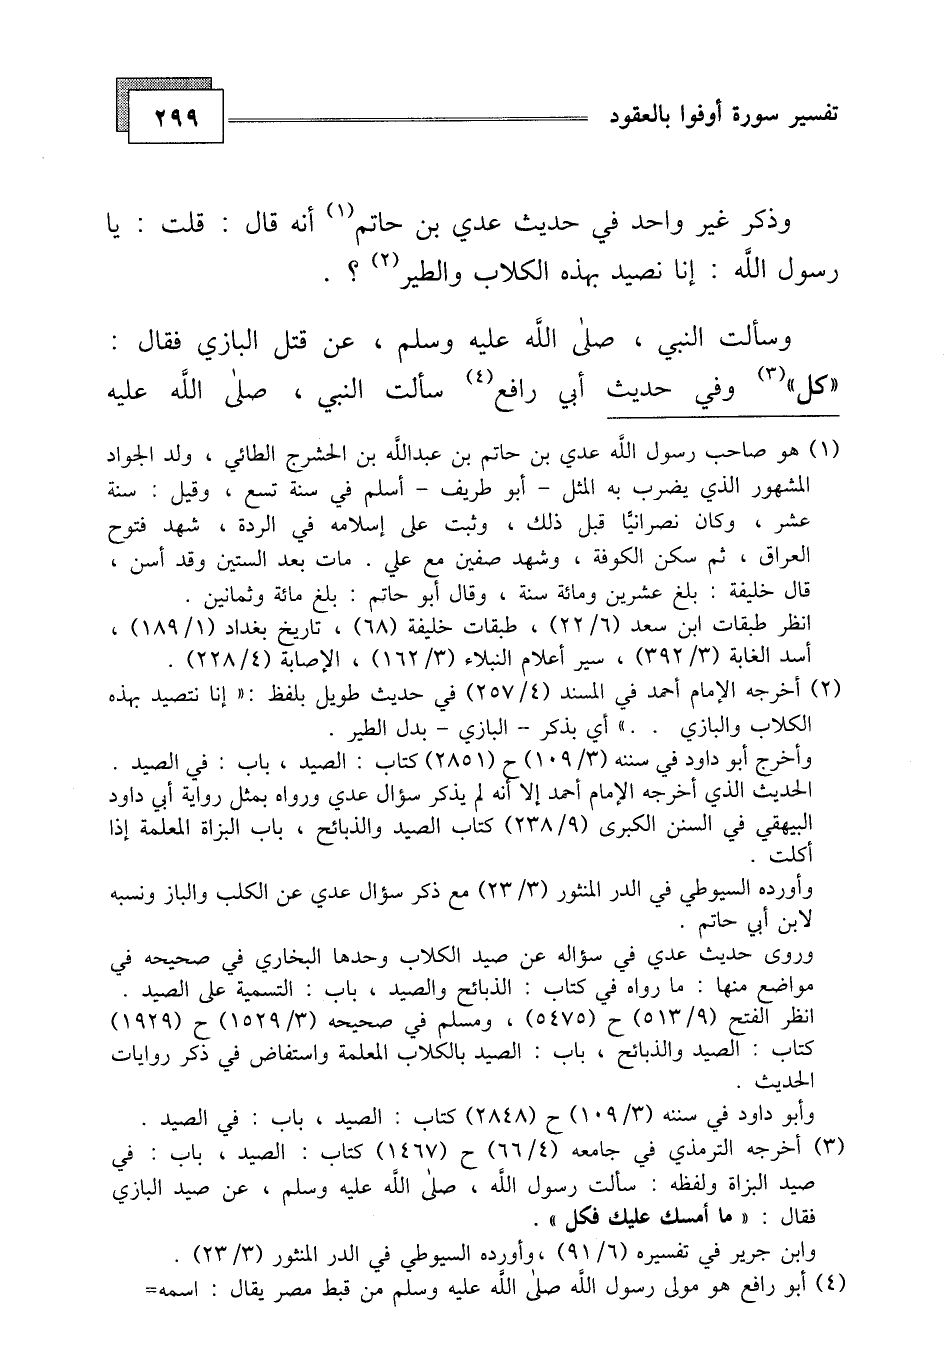 تفسير سورة أوفوا بالعقود ٢٩٩
وذكر غير واحد في حديث عدي بن حاتم(١) أنه قال : قلت : يا
رسول اللَّه : إنا نصيد بهذه الكلاب والطير(٢) ؟ .
وسألت النبي ، صلى اللَّه عليه وسلم ، عن قتل البازي فقال :
«كل»(٣) وفي حديث أبي رافع(٤) سألت النبي ، صلى اللَّه عليه
(١) هو صاحب رسول اللَّه عدي بن حاتم بن عبداللَّه بن الحشرج الطائي ، ولد الجواد
المشهور الذي يضرب به المثل – أبو طريف – أسلم في سنة تسع ، وقيل : سنة
عشر ، وكان نصرانيًّا قبل ذلك ، وثبت على إسلامه في الردة ، شهد فتوح
العراق ، ثم سكن الكوفة ، وشهد صفين مع علي . مات بعد الستين وقد أسن ،
قال خليفة : بلغ عشرين ومائة سنة ، وقال أبو حاتم : بلغ مائة وثمانين .
انظر طبقات ابن سعد (٢٢/٦) ، طبقات خليفة (٦٨) ، تاريخ بغداد (١٨٩/١) ،
أسد الغابة (٣٩٢/٣) ، سير أعلام النبلاء (١٦٢/٣) ، الإصابة (٢٢٨/٤) .
(٢) أخرجه الإمام أحمد في المسند (٢٥٧/٤) في حديث طويل بلفظ :« إنا نتصيد بهذه
الكلاب والبازي . .» أي بذكر – البازي – بدل الطير .
وأخرج أبو داود في سننه (١٠٩/٣) ح (٢٨٥١) كتاب : الصيد ، باب : في الصيد .
الحديث الذي أخرجه الإمام أحمد إلا أنه لم يذكر سؤال عدي ورواه بمثل رواية أبي داود
البيهقي في السنن الكبرى (٢٣٨/٩) كتاب الصيد والذبائح ، باب البزاة المعلمة إذا
أكلت .
وأورده السيوطي في الدر المنثور (٢٣/٣) مع ذكر سؤال عدي عن الكلب والباز ونسبه
لابن أبي حاتم .
وروى حديث عدي في سؤاله عن صيد الكلاب وحدها البخاري في صحيحه في
مواضع منها : ما رواه في كتاب : الذبائح والصيد ، باب : التسمية على الصيد .
انظر الفتح (٥١٣/٩) ح (٥٤٧٥) ، ومسلم في صحيحه (١٥٢٩/٣) ح (١٩٢٩)
كتاب : الصيد والذبائح ، باب : الصيد بالكلاب المعلمة واستفاض في ذكر روايات
الحديث .
وأبو داود في سننه (١٠٩/٣) ح (٢٨٤٨) كتاب : الصيد ، باب : في الصيد .
(٣) أخرجه الترمذي في جامعه (٦٦/٤) ح (١٤٦٧) كتاب : الصيد ، باب : في
صيد البزاة ولفظه : سألت رسول اللَّه ، صلى اللَّه عليه وسلم ، عن صيد البازي
فقال : « ما أمسك عليك فكل » .
وابن جرير في تفسيره (٩١/٦) ،وأورده السيوطي في الدر المنثور (٢٣/٣) .
(٤) أبو رافع هو مولى رسول اللَّه صلى اللَّه عليه وسلم من قبط مصر يقال : اسمه=